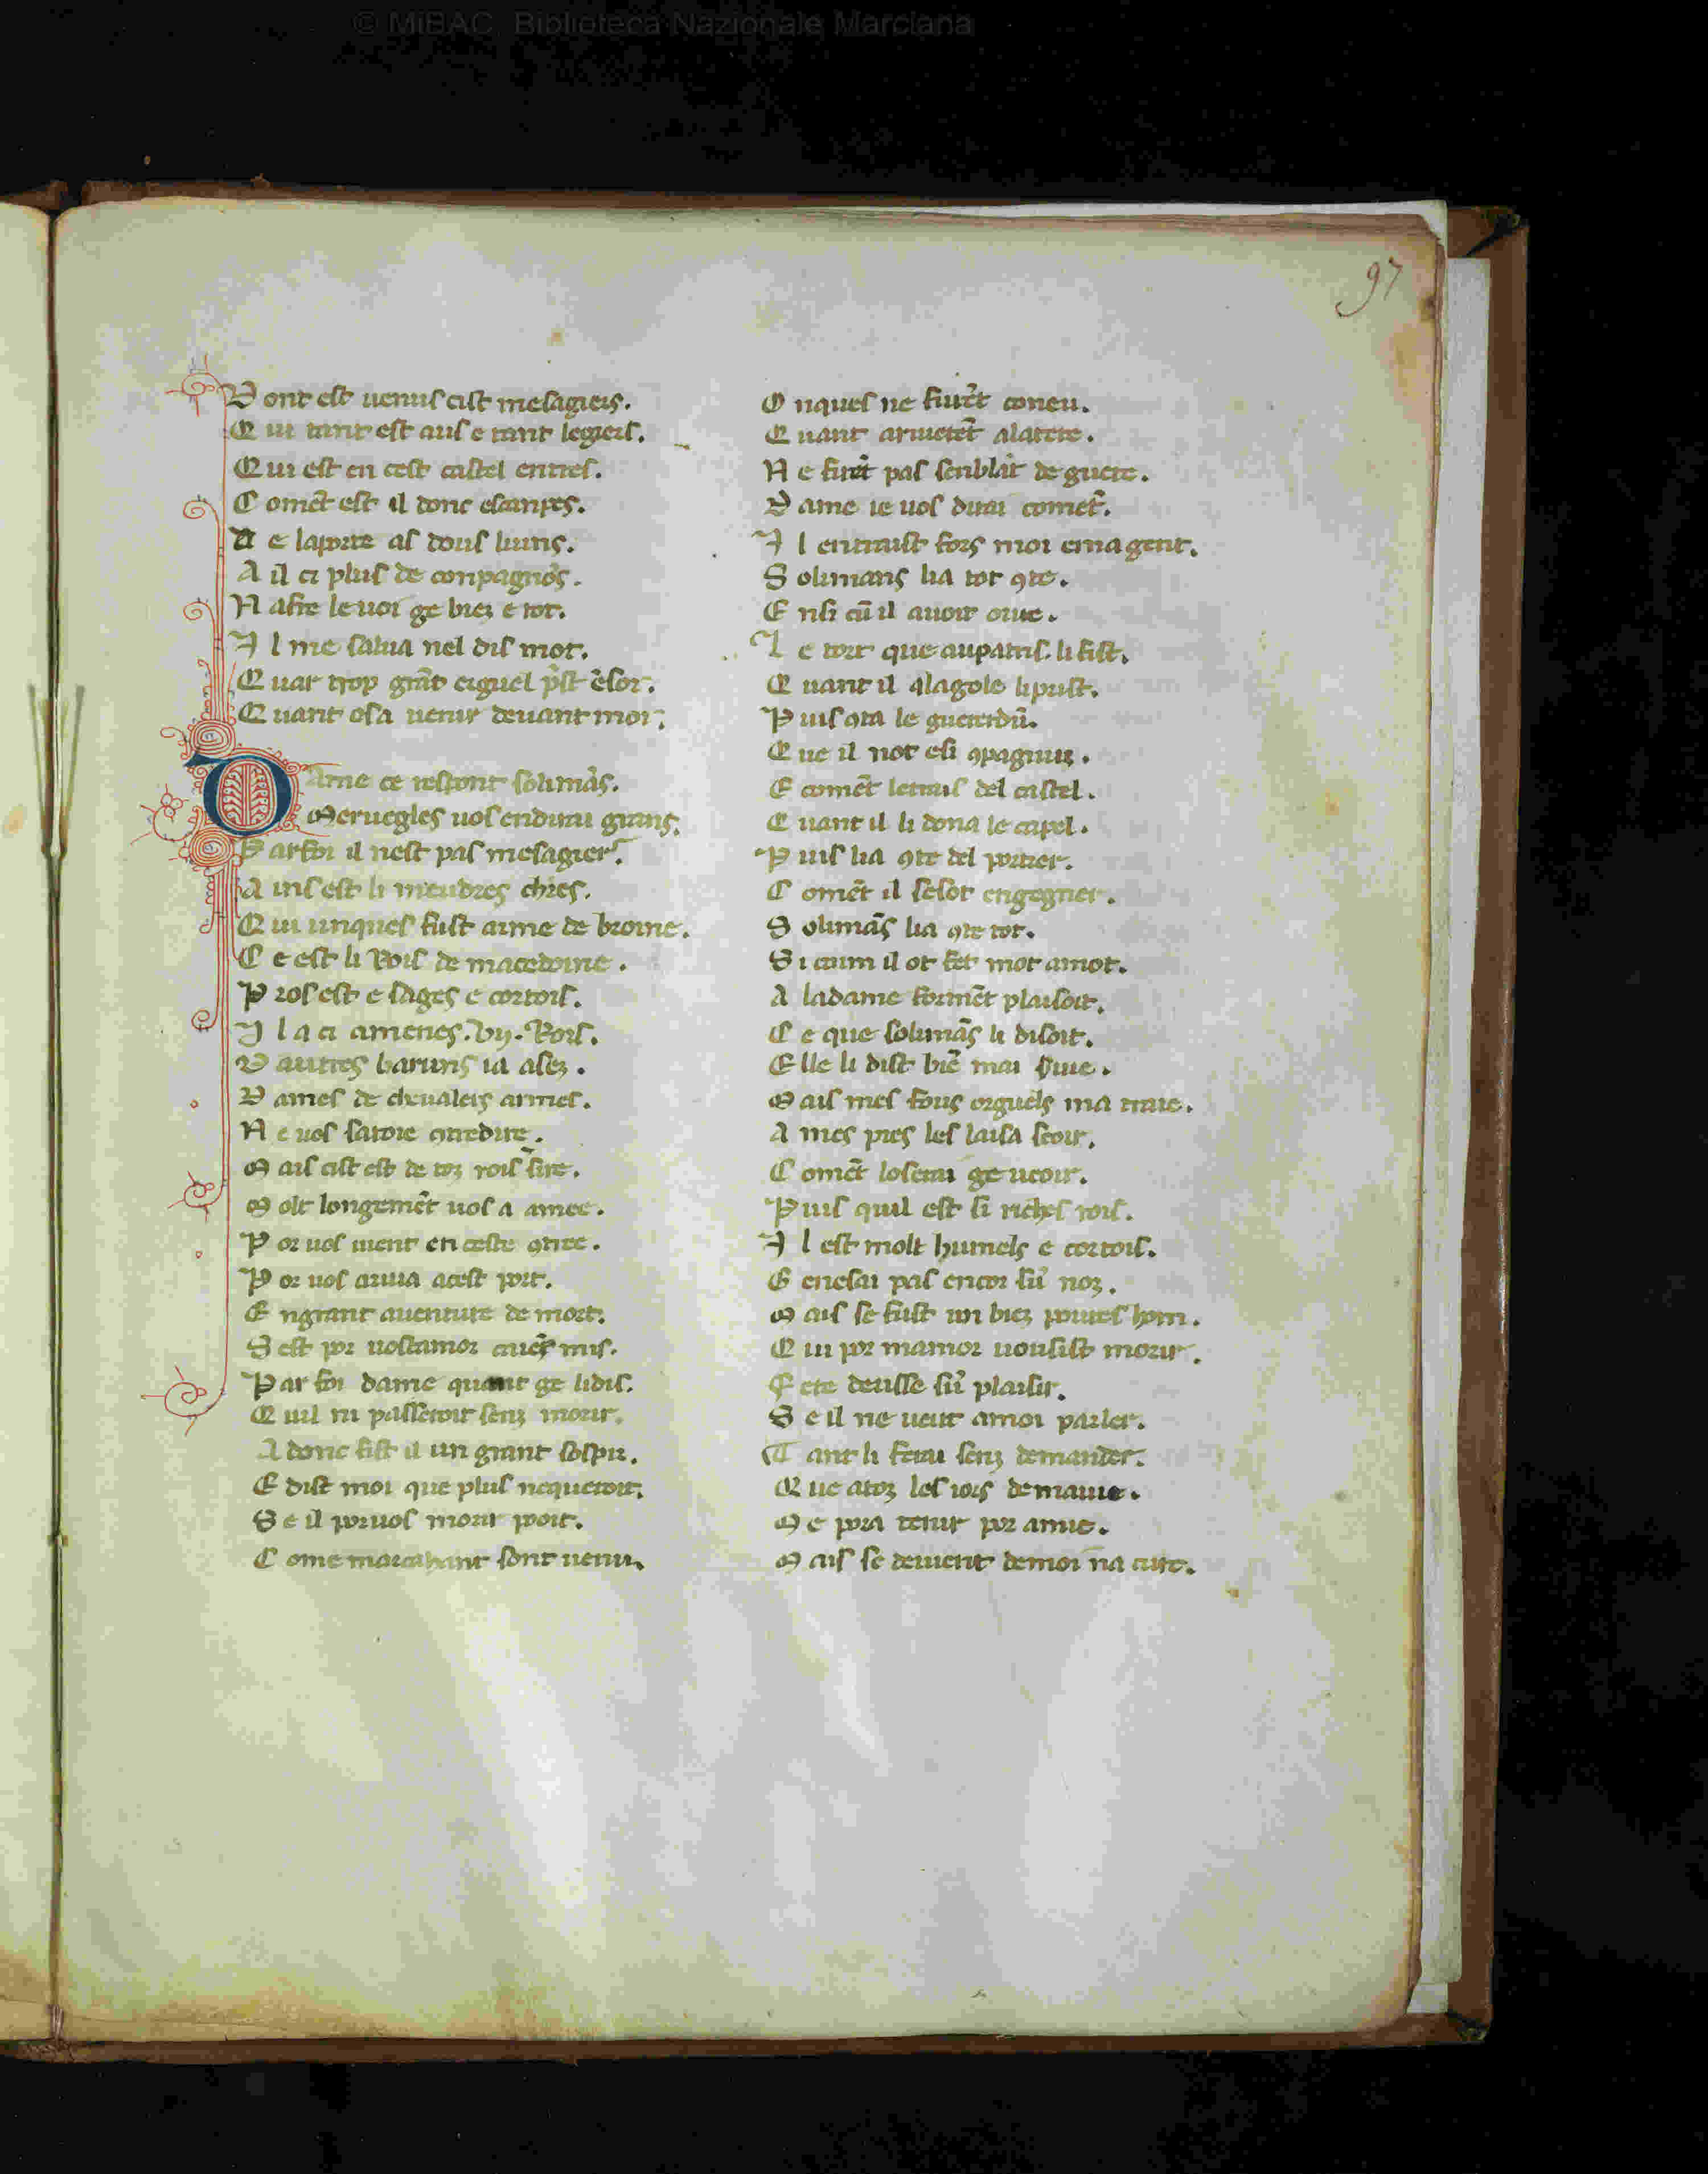 © MiBAC. Biblioteca Nazionale Marciana
97
D ont est uenus cist mesagiers.
Q ui tant est aus e tant legiers.
Q ui est en cest castel entres.
C omēt est il donc escanpes.
D e laporte as dous liuns.
A il ci plus de conpagnōs.
N afie le uoi ge biez e tot.
I l me salua nel dis mot.
Q uar trop grāt erguel pͥst ēsor.
Q uant osa uenir deuant moi.
D ame ce respont solimās.
Meruegles uos endirai grans.
P arfoi il nest pas mesagier.
A ins est li meudres chr̄es.
Q ui unques fust arme de broine.
C e est li Rois de macedoine.
P ros est e sages e cortois.
I l a ci amenes .vij. Rois.
D autres baruns ia asez.
D ames de cheualers armes.
N e uos saroie ꝯtredire.
M ais cist est de toz rois sire.
M olt longemēt uos a amee.
P or uos uient en ceste ꝯtree.
P or uos ariua acest port.
E ngrant auenture de mort.
S est por uostamor mis.
P ar foi dame quant ge lidis.
Q uil ni passeroit senz morir.
A donc fist il un grant sospir.
E dist moi que plus nequeroit.
S e il poruos morir poit.
C ome marcahant sont uenu.
O nques ne furēt coneu.
Q uant ariuerēt alaterre.
N e furēt pas senblāt de guerre.
D ame ie uos dirai comēt.
I l entraist fors moi emagent.
S olimans lia tot ꝯte.
E nsi cū il auoit oure.
L e tort que aupatris li fist.
Q uant il alagole liprist.
P uis ꝯta le guererdū.
Q ue il not esi ꝯpagniuz.
E comēt letrais del castel.
Q uant il li dona le capel.
P uis lia ꝯte del portier.
C omēt il lesot engegner.
S olimās lia ꝯte tot.
S i cum il ot fet mot amot.
A ladame formēt plaisoit.
C e que solimās li disoit.
E lle li dist biē mai
M ais mes fous orguels ma traie.
A mes pies les laisa seoir.
C omēt loserai ge ueoir.
P uis quil est si riches rois.
I l est molt humels e cortois.
G enesai pas encor sū noz.
M ais se fust un biez poures hom.
Q ui por mamor uousist morir.
F ere deusse sū plaisir.
S e il ne ueut amoi parler.
T ant li ferai senz demander.
Q ue atoz les iors demauie.
M e pora tenir por amie.
M ais se deuient demoi na cure.